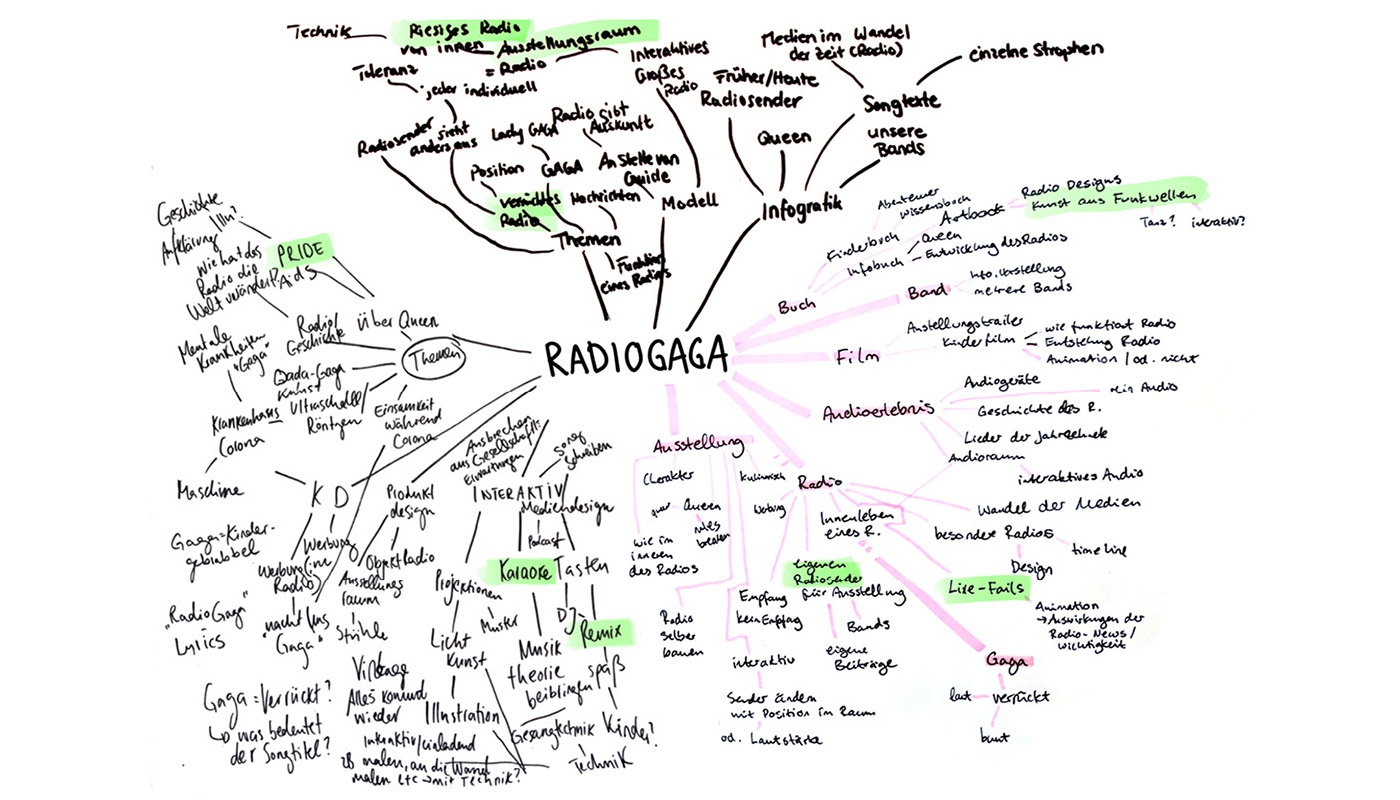 Technik
Riesiges Radio
von innen
Ausstellungsraum
= Radio
Toleranz
jeder individuell
Radiosender
sieht
anders aus
Lady GAGA
Radio gibt
Auskunft
Position
GAGA
Anstelle von
Guide
verrücktes
Radio
Nachrichten
Themen
Funktion
eines Radios
Interaktives
Großes
Radio
Modell
Früher/Heute
Radiosender
Queen
Medien im Wandel
der Zeit (Radio)
einzelne Strophen
Songtexte
unsere
Bands
Infografik
RADIOGAGA
Geschichte
Aufklärung
PRIDE
Wie hat das
Radio die
Welt verändert?
Aids
Mentale
Krankheiten
"Gaga"
Radio/
Geschichte
Über Queen
Themen
Dada-Gaga
Kunst
Ultraschall/
Röntgen
Krankenhaus
Corona
Einsamkeit
während
Corona
Maschine
KD
Gaga=Kinder-
gebrabbel
Werbung
Werbung (im
Radio)
"Radio Gaga"
Lyrics
"macht uns
Gaga"
Gaga=Verrückt?
↳ was bedeutet
der Songtitel?
Produkt
design
Objekt Radio
Ausstellungs
raum
Stühle
Vintage
Alles kommt
wieder
Ausbrechen
aus Gesellschaft.
Erwartungen
INTERAKTIV
Song
schreiben
Mediendesign
Podcast
Karaoke
Tasten
Projektionen
Muster
Licht
Kunst
Illustration
DJ
Remix
Musik
theorie
beibringen
Spaß
Gesangtechnik
Kinder?
Technik
interaktiv/einladend
zB malen, an die Wand
malen etc → mit Technik?
Buch
Kinderbuch
Abenteuer
Wissensbuch
Artbook
Radio Designs
Kunst aus Funkwellen
Tanz? interaktiv?
Infobuch
Queen
Entwicklung des Radios
Band
Info. Vorstellung
mehrere Bands
Film
Austellungstrailer
Kinderfilm
wie funktioniert Radio
Entstehung Radio
Animation / od. nicht
Audioerlebnis
Audiogeräte
rein Audio
Geschichte des R.
Lieder der Jahrzehnte
Audioraum
interaktives Audio
Ausstellung
Charakter
Queen
wie im
inneren
des Radios
Radio
selber
bauen
kulinarisch
Werbung
Empfang
kein Empfang
interaktiv
Sender ändern
mit Position im Raum
od. Lautstärke
Radio
Innenleben
eines R.
eigenen
Radiosender
für Ausstellung
Bands
eigene
Beiträge
Wandel der Medien
timeline
besondere Radios
Design
Live-Fails
Animation
→ Auswirkungen der
Radio-News/
wichtigkeit
Gaga
laut
verrückt
bunt